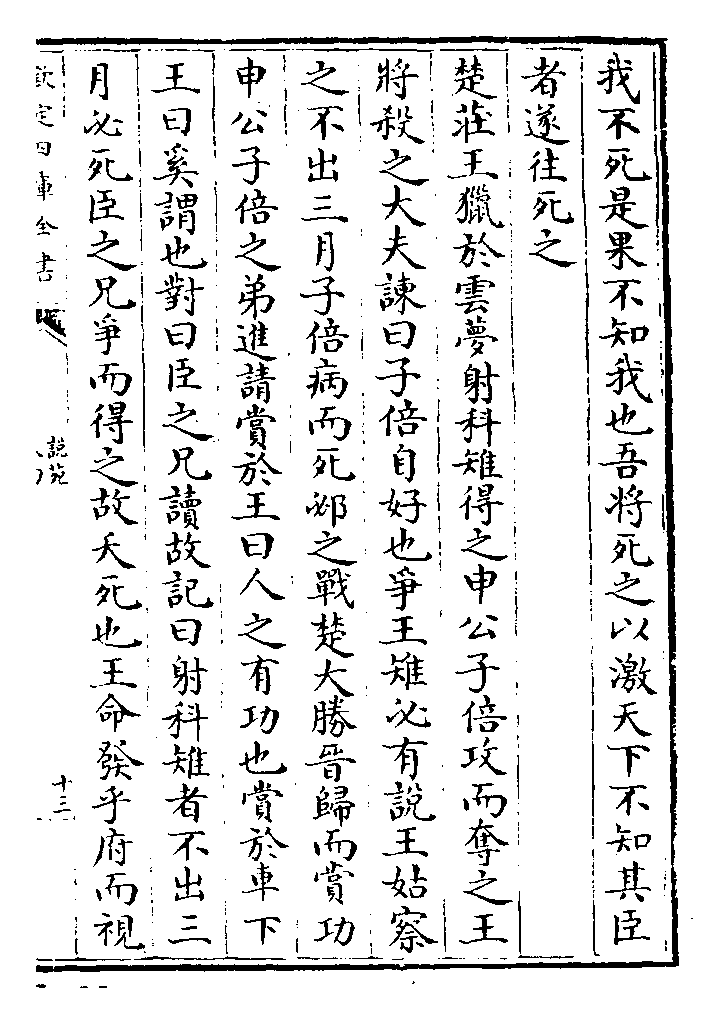 我不死是果不知我也吾將死之以激天下不知其臣
者遂往死之
楚莊王獵於雲夢射科雉得之申公子倍攻而奪之王
將殺之大夫諫曰子倍自好也爭王雉必有說王姑察
之不出三月子倍病而死邲之戰楚大勝晉歸而賞功
申公子倍之弟進請賞於王曰人之有功也賞於車下
王曰奚謂也對曰臣之兄讀故記曰射科雉者不出三
月必死臣之兄爭而得之故夭死也王命發乎府而視
欽定四庫全書
說苑
十三